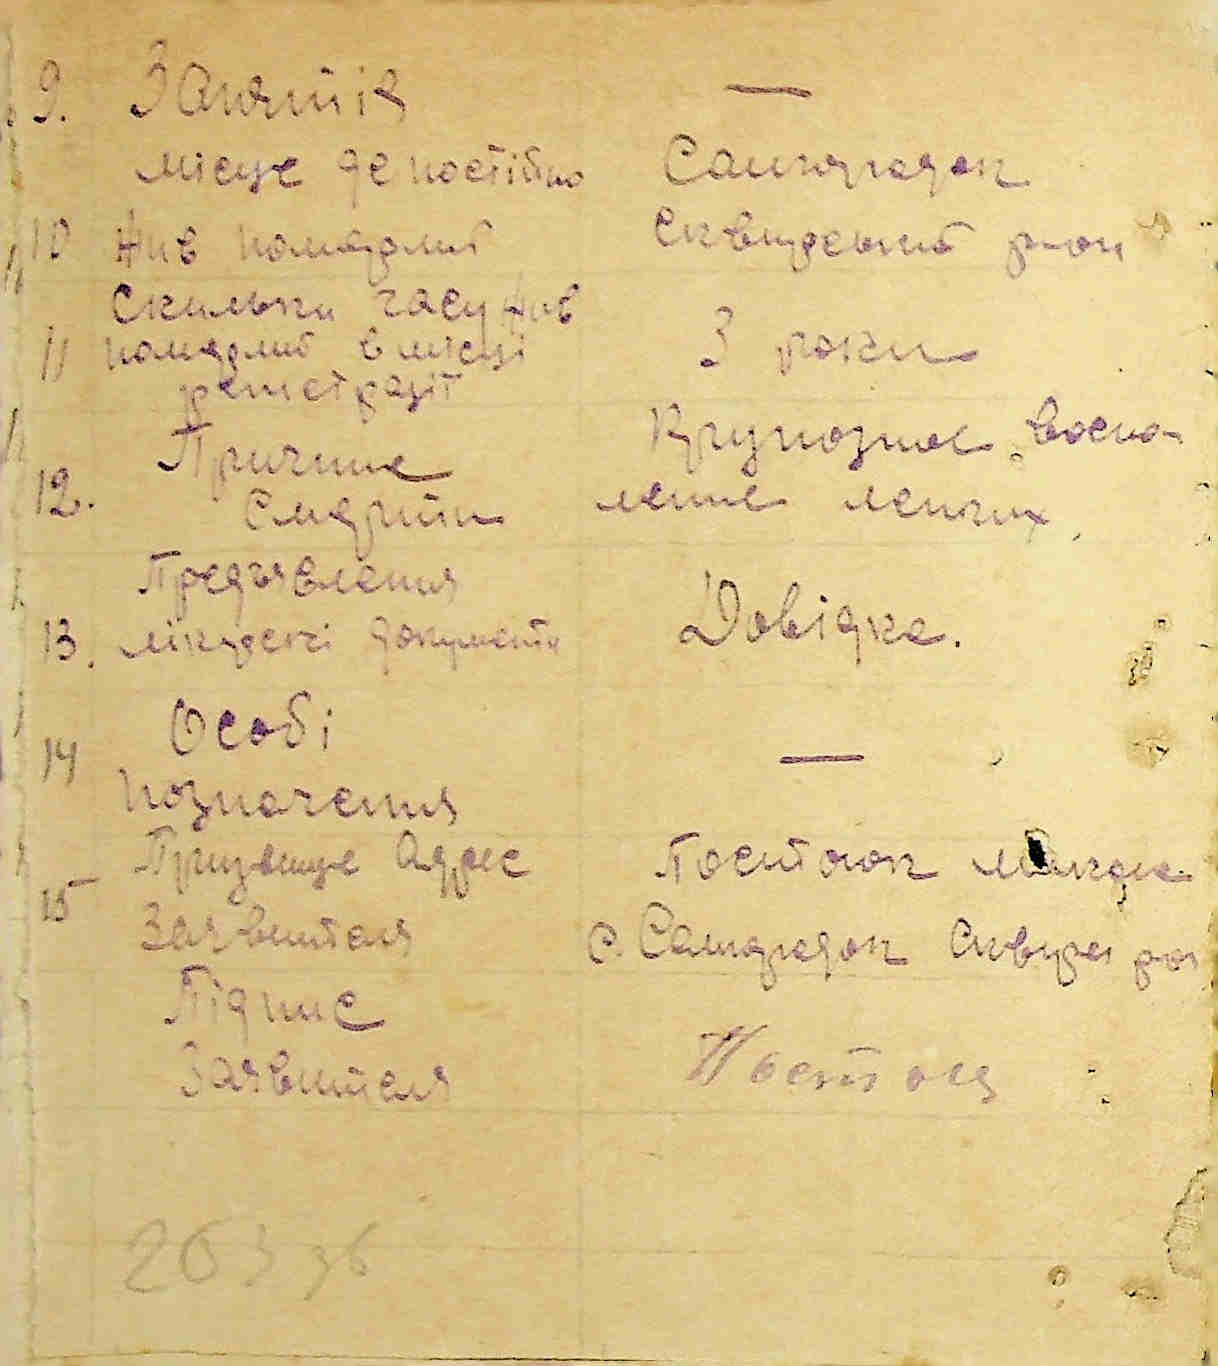 9. Заняття —
місце де постійно Самгородок
10 жив померлий Сквирський р-он
Скильки часу жив
11 померлий в місці 3 роки
регистрації
Причина Крупозное воспо-
12. Смерти ление легких
Предъявления
13. лікарські документи Довідка.
Особі
14 —
позначения
Призвище Адрес Постоюк
15
Заявителя с. Самгородок Сквирс рон
Підпис
Заявителя
263 зб